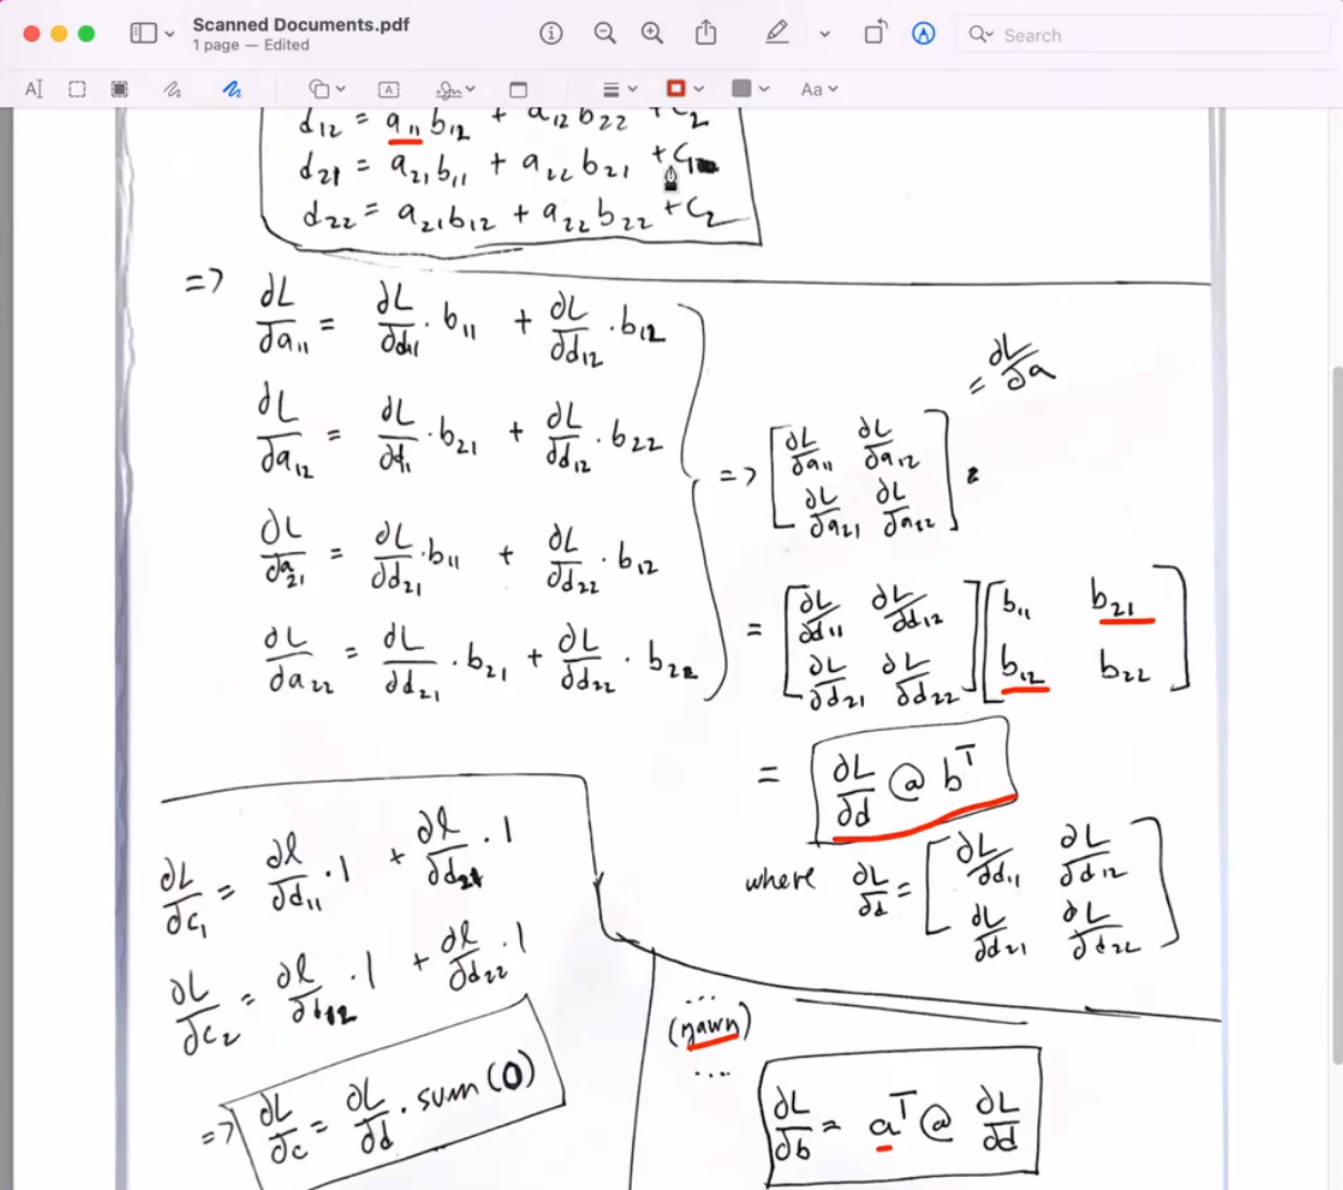 Scanned Documents.pdf
1 page — Edited
Search
Aa
d₁₂ = a₁₁ b₁₂ + a₁₂ b₂₂ + c₂
d₂₁ = a₂₁ b₁₁ + a₂₂ b₂₁ + c₁
d₂₂ = a₂₁ b₁₂ + a₂₂ b₂₂ + c₂
=> ∂L/∂a₁₁ = ∂L/∂d₁₁ · b₁₁ + ∂L/∂d₁₂ · b₁₂
∂L/∂a₁₂ = ∂L/∂d₁₁ · b₂₁ + ∂L/∂d₁₂ · b₂₂
∂L/∂a₂₁ = ∂L/∂d₂₁ · b₁₁ + ∂L/∂d₂₂ · b₁₂
∂L/∂a₂₂ = ∂L/∂d₂₁ · b₂₁ + ∂L/∂d₂₂ · b₂₂
= ∂L/∂a
=> [ ∂L/∂a₁₁ ∂L/∂a₁₂
∂L/∂a₂₁ ∂L/∂a₂₂ ] =
= [ ∂L/∂d₁₁ ∂L/∂d₁₂ ] [ b₁₁ b₂₁
∂L/∂d₂₁ ∂L/∂d₂₂ ] [ b₁₂ b₂₂ ]
= ∂L/∂d @ bᵀ
where ∂L/∂d = [ ∂L/∂d₁₁ ∂L/∂d₁₂
∂L/∂d₂₁ ∂L/∂d₂₂ ]
∂L/∂c₁ = ∂l/∂d₁₁ · 1 + ∂l/∂d₂₁ · 1
∂L/∂c₂ = ∂l/∂b₁₂ · 1 + ∂l/∂d₂₂ · 1
=> ∂L/∂c = ∂L/∂d . sum(0)
...
(yawn)
....
∂L/∂b = aᵀ @ ∂L/∂d